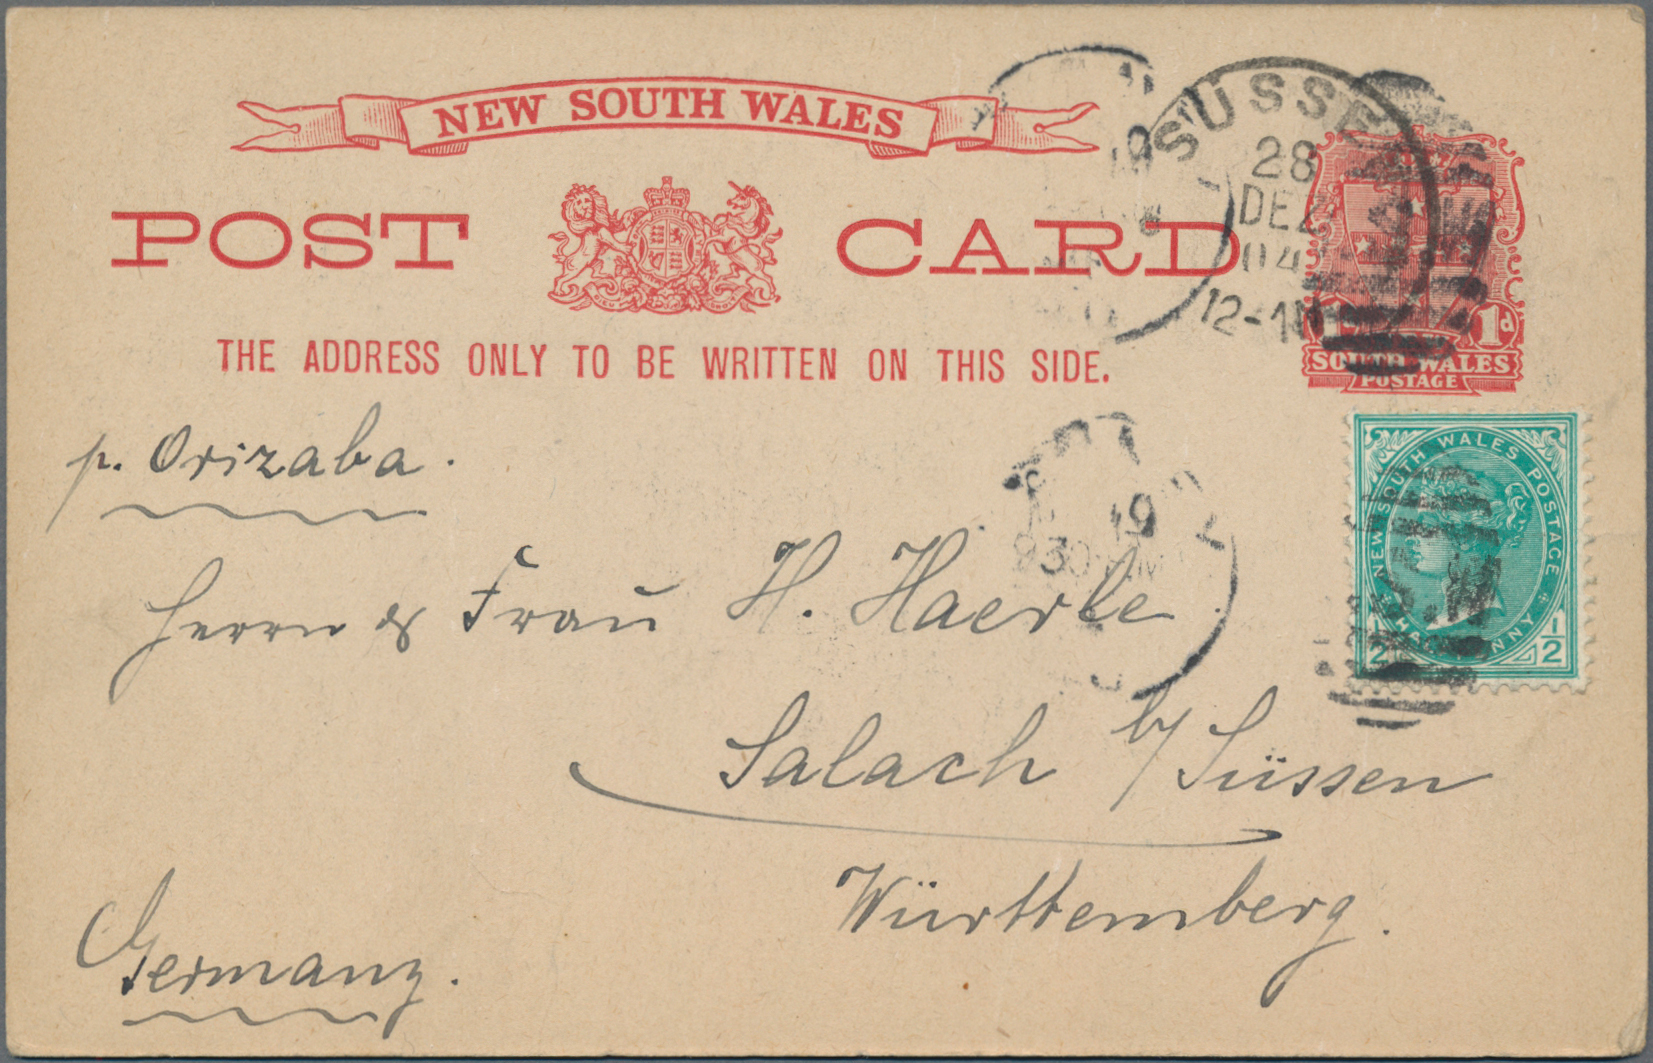 NEW SOUTH WALES
POST CARD
THE ADDRESS ONLY TO BE WRITTEN ON THIS SIDE.
SÜSSE
28
DEZ
04
12-1N
1d
SOUTH WALES
POSTAGE
p. Orizaba.
19
9 30 AM
NEW SOUTH WALES POSTAGE
HALFPENNY
1/2 1/2
Herrn & Frau H. Haerle
Salach b/ Süssen
Württemberg.
Germany.